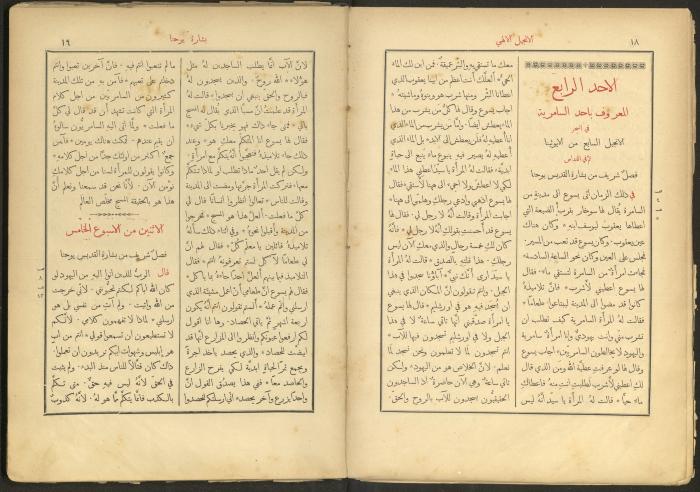 ١٨
الانجيل الالهي
الاحد الرابع
المعروف باحد السامرية
في السحر
الانجيل السابع من الايوثينا
وفي القداس
فصل شريف من بشارة القديس يوحنا
في ذلك الزمان اتى يسوع الى مدينة من
السامرة يقال لها سوخار بقرب الضيعة التي
اعطاها يعقوب ليوسف ابنه * وكان هناك
عين يعقوب * وكان يسوع قد تعب من المسير *
فجلس على العين وكان نحو الساعة السادسة *
فجاءت امرأة من السامرة لتستقي ماء * فقال
لها يسوع اعطيني لأشرب * فانّ تلاميذه
كانوا قد مضوا الى المدينة ليبتاعوا طعاما *
فقالت له المرأة السامرية كيف تطلب ان
تشرب مني وانت يهوديّ وانا امرأة سامرية
واليهود لا يخالطون السامريين * اجاب يسوع
وقال لها لو عرفت عطية الله ومن الذي قال
لك اعطيني لأشرب لطلبت انت منه * فاعطاك
ماء حيّا * قالت له المرأة يا سيد انه ليس
معك ما تستقي به والبئر عميقة * فمن اين لك الماء
الحيّ * ألعلّك انت اعظم من ابينا يعقوب الذي
اعطانا البئر ومنها شرب هو وبنوه وماشيته *
اجاب يسوع وقال لها كلّ من يشرب من هذا
الماء يعطش ايضًا * وأمّا من يشرب من الماء الذي
انا أعطيه له فلن يعطش الى الابد * بل الماء الذي
أعطيه له يصير فيه ينبوع ماء ينبع الى حياة
ابدية * فقالت له المرأة يا سيد اعطني هذا الماء
لكي لا اعطش ولا اجيء الى هنا لأستقي * فقال
لها يسوع اذهبي وادعي رجلك وهلمّي الى هنا *
اجابت المرأة وقالت انه لا رجل لي * فقال لها
يسوع قد أحسنت بقولك أنّه لا رجل لي * فانه
كان لك خمسة رجال والذي معك الآن ليس
رجلك * هذا قلته بالصدق * قالت له المرأة
يا سيد ارى أنّك نبيّ * آباؤنا سجدوا في هذا
الجبل * وانتم تقولون انّ المكان الذي ينبغي
ان يُسجد فيه هو في اورشليم * قال لها يسوع
يا امرأة صدقيني انها تأتي ساعةٌ * لا في هذا
الجبل ولا في اورشليم تسجدون فيها للآب *
انتم تسجدون لما لا تعلمون ونحن نسجد لما
نعلم * لانّ الخلاص هو من اليهود * ولكن
تأتي ساعةٌ * وهي الآن حاضرةٌ * اذ الساجدون
الحقيقيّون يسجدون للآب بالروح والحق.
بشارة يوحنا
لانّ الآب انّما يطلب الساجدين له مثل
هؤلاء * الله روح * والذين يسجدون له
فبالروح والحق ينبغي ان يسجدوا * قالت له
المرأة قد علمت انّ مسيّا الذي يقال له المسيح
يأتي * فمتى جاء ذاك فهو يخبرنا بكل شيء *
فقال لها يسوع انا المتكلّم معك هو * وعند
ذلك جاء تلاميذه * فتعجبوا انه يتكلم مع امرأة *
ولكن لم يقل احد * ماذا تطلب او لماذا تتكلم
معها * فتركت المرأة جرّتها ومضت الى المدينة
وقالت للناس * تعالوا انظروا انسانًا قال لي
كلّ ما فعلت * ألعلّ هذا هو المسيح * فخرجوا
من المدينة وأقبلوا نحوه * وفي اثناء ذلك سأله
تلاميذه قائلين يا معلّم كلْ * فقال لهم انّ
لي طعاما لآكل لستم تعرفونه انتم * فقال
التلاميذ فيما بينهم ألعلّ احدًا جاءهُ بما يأكل *
فقال لهم يسوع انّ طعامي ان اعمل مشيئة الذي
ارسلني وأتمّ عمله * ألستم تقولون انتم انه يكون
اربعة اشهر ثم يأتي الحصاد * وها انا اقول
لكم ارفعوا عيونكم وانظروا الى المزارع انّها قد
ابيضّت للحصاد * والذي يحصد يأخذ أجرة
ويجمع ثمرًا لحياة ابدية لكي يفرح الزارع
والحاصد معًا * ففي هذا يصدُق القول انّ
واحدًا يزرع وآخر يحصد * اني ارسلتكم لتحصدوا
ما لم تتعبوا انتم فيه * فانّ آخرين تعبوا وانتم
دخلتم على تعبهم * فآمن به من تلك المدينة
كثيرون من السامريّين من اجل كلام
المرأة التي كانت تشهد أن قد قال لي كلّ
ما فعلت * ولمّا اتى اليه السامريّون سألوهُ
ان يقيم عندهم * فمكث هناك يومين * فآمن
جمعٌ اكثر من اولئك جدّا من اجل كلامه *
وكانوا يقولون للمرأة لسنا من اجل كلامك
نؤمن الآن * لأنّا نحن قد سمعنا ونعلم أنّ
هذا هو بالحقيقة المسيح مخلّص العالم
الاثنين من الاسبوع الخامس
فصل شريف من بشارة القديس يوحنا
قال الربّ للذين اتوا اليه من اليهود لو
كان الله اباكم لكنتم تحبّوني * لأني خرجت
من الله واتيت * ولم آتِ من نفسي بل هو
ارسلني * لماذا لا تفهمون كلامي * لأنّكم
لا تستطيعون ان تسمعوا قولي * انتم من اب
هو إبليس وشهوات ابيكم تريدون ان تعملوا.
ذاك كان قتّالًا للناس منذ البدء * ولم يثبت
في الحق لانّه ليس فيه حقّ * متى تكلّم
بالكذب فانّما يتكلم ممّا هو له * لأنّه كذوبٌ